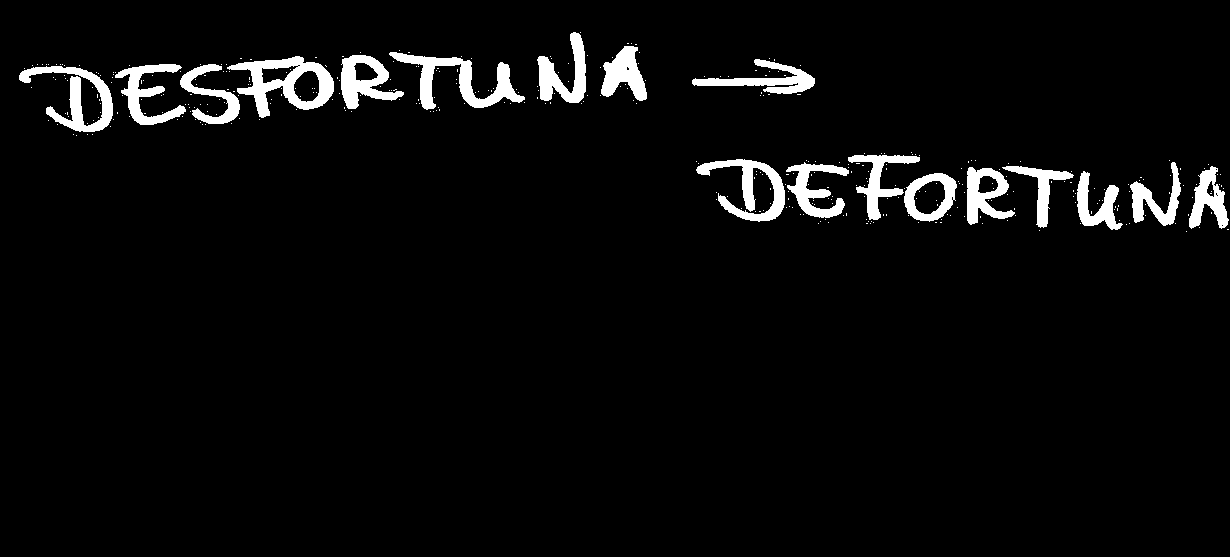 DESFORTUNA →
DEFORTUNA